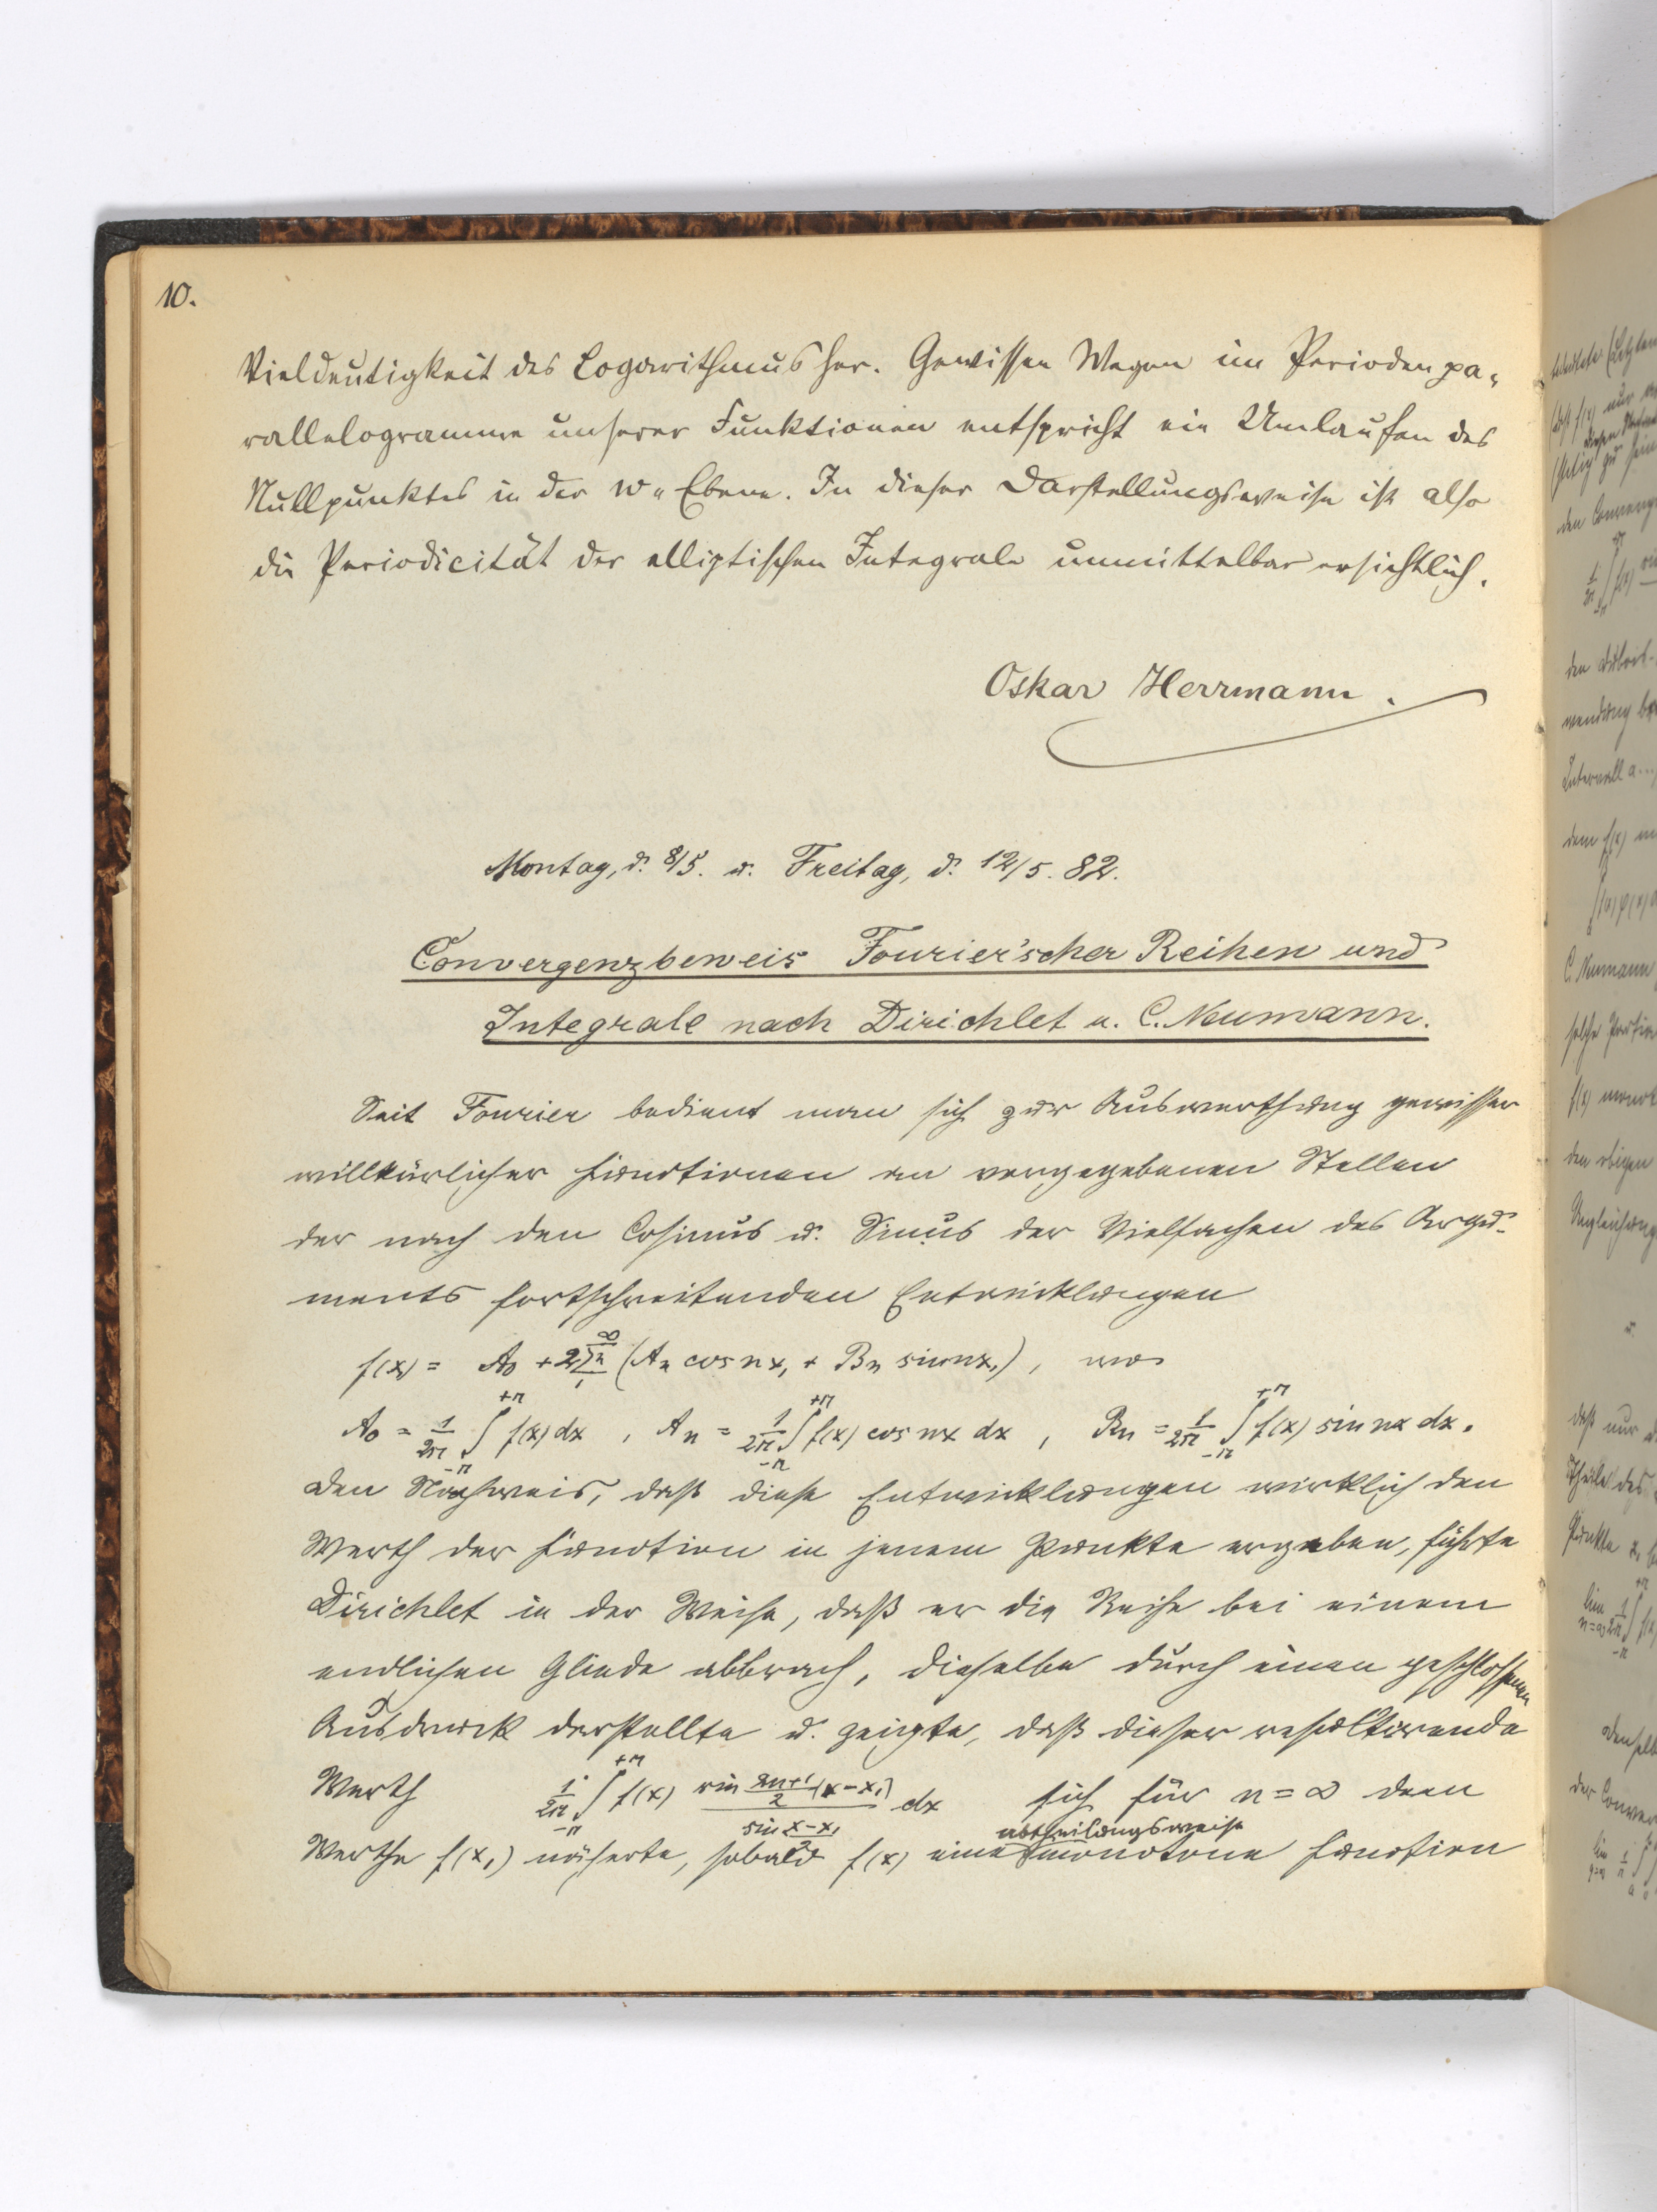 10.
Vieldeutigkeit des Logarithmus her. Gewissen Wegen im Periodenpa-
rallelogramme unserer Funktionen entspricht ein Umlaufen des
Nullpunktes in der w-Ebene. In dieser Darstellungsweise ist also
die Periodicität der elliptischen Integrale unmittelbar ersichtlich.
Oskar Herrmann.
Montag, d. 8/5. u. Freitag, d. 12/5. 82.
Convergenzbeweis Fourier'scher Reihen und
Integrale nach Dirichlet u. C. Neumann.
Seit Fourier bedient man sich zur Auswerthung gewisser
willkürlicher Functionen an vorgegebenen Stellen
der nach den Cosinus u. Sinus der Vielfachen des Argu-
ments fortschreitenden Entwicklungen
f(x₁) = A₀ + 2 Σₙ₁^∞ (Aₙ cos nx₁ + Bₙ sin nx₁), wo
A₀ = 1/2π ∫₋π^+π f(x) dx, Aₙ = 1/2π ∫₋π^+π f(x) cos nx dx, Bₙ = 1/2π ∫₋π^+π f(x) sin nx dx.
Den Nachweis, daß diese Entwicklungen wirklich den
Werth der Function in jenem Punkte ergeben, führte
Dirichlet in der Weise, daß er die Reihe bei einem
endlichen Gliede abbrach, dieselbe durch einen geschlossenen
Ausdruck darstellte u. zeigte, daß dieser resultirende
Werth 1/2π ∫₋π^+π f(x) sin (2n+1)/2 (x-x₁) / sin (x-x₁)/2 dx sich für n=∞ dem
abtheilungsweise
Werthe f(x₁) näherte, sobald f(x) eine monotone Function